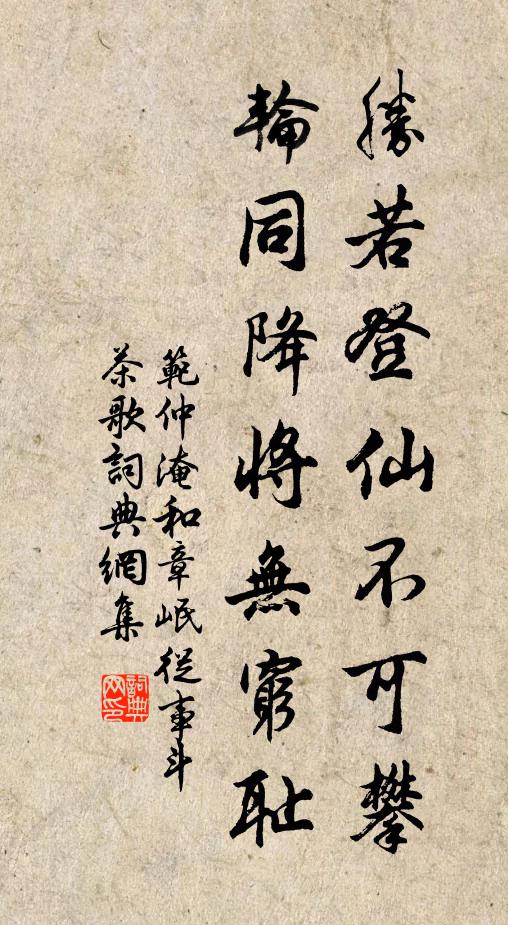 勝若登仙不可攀
輪同降將無窮恥
範仲淹和章岷從事斗
茶歌詞典網集
詞典
网印